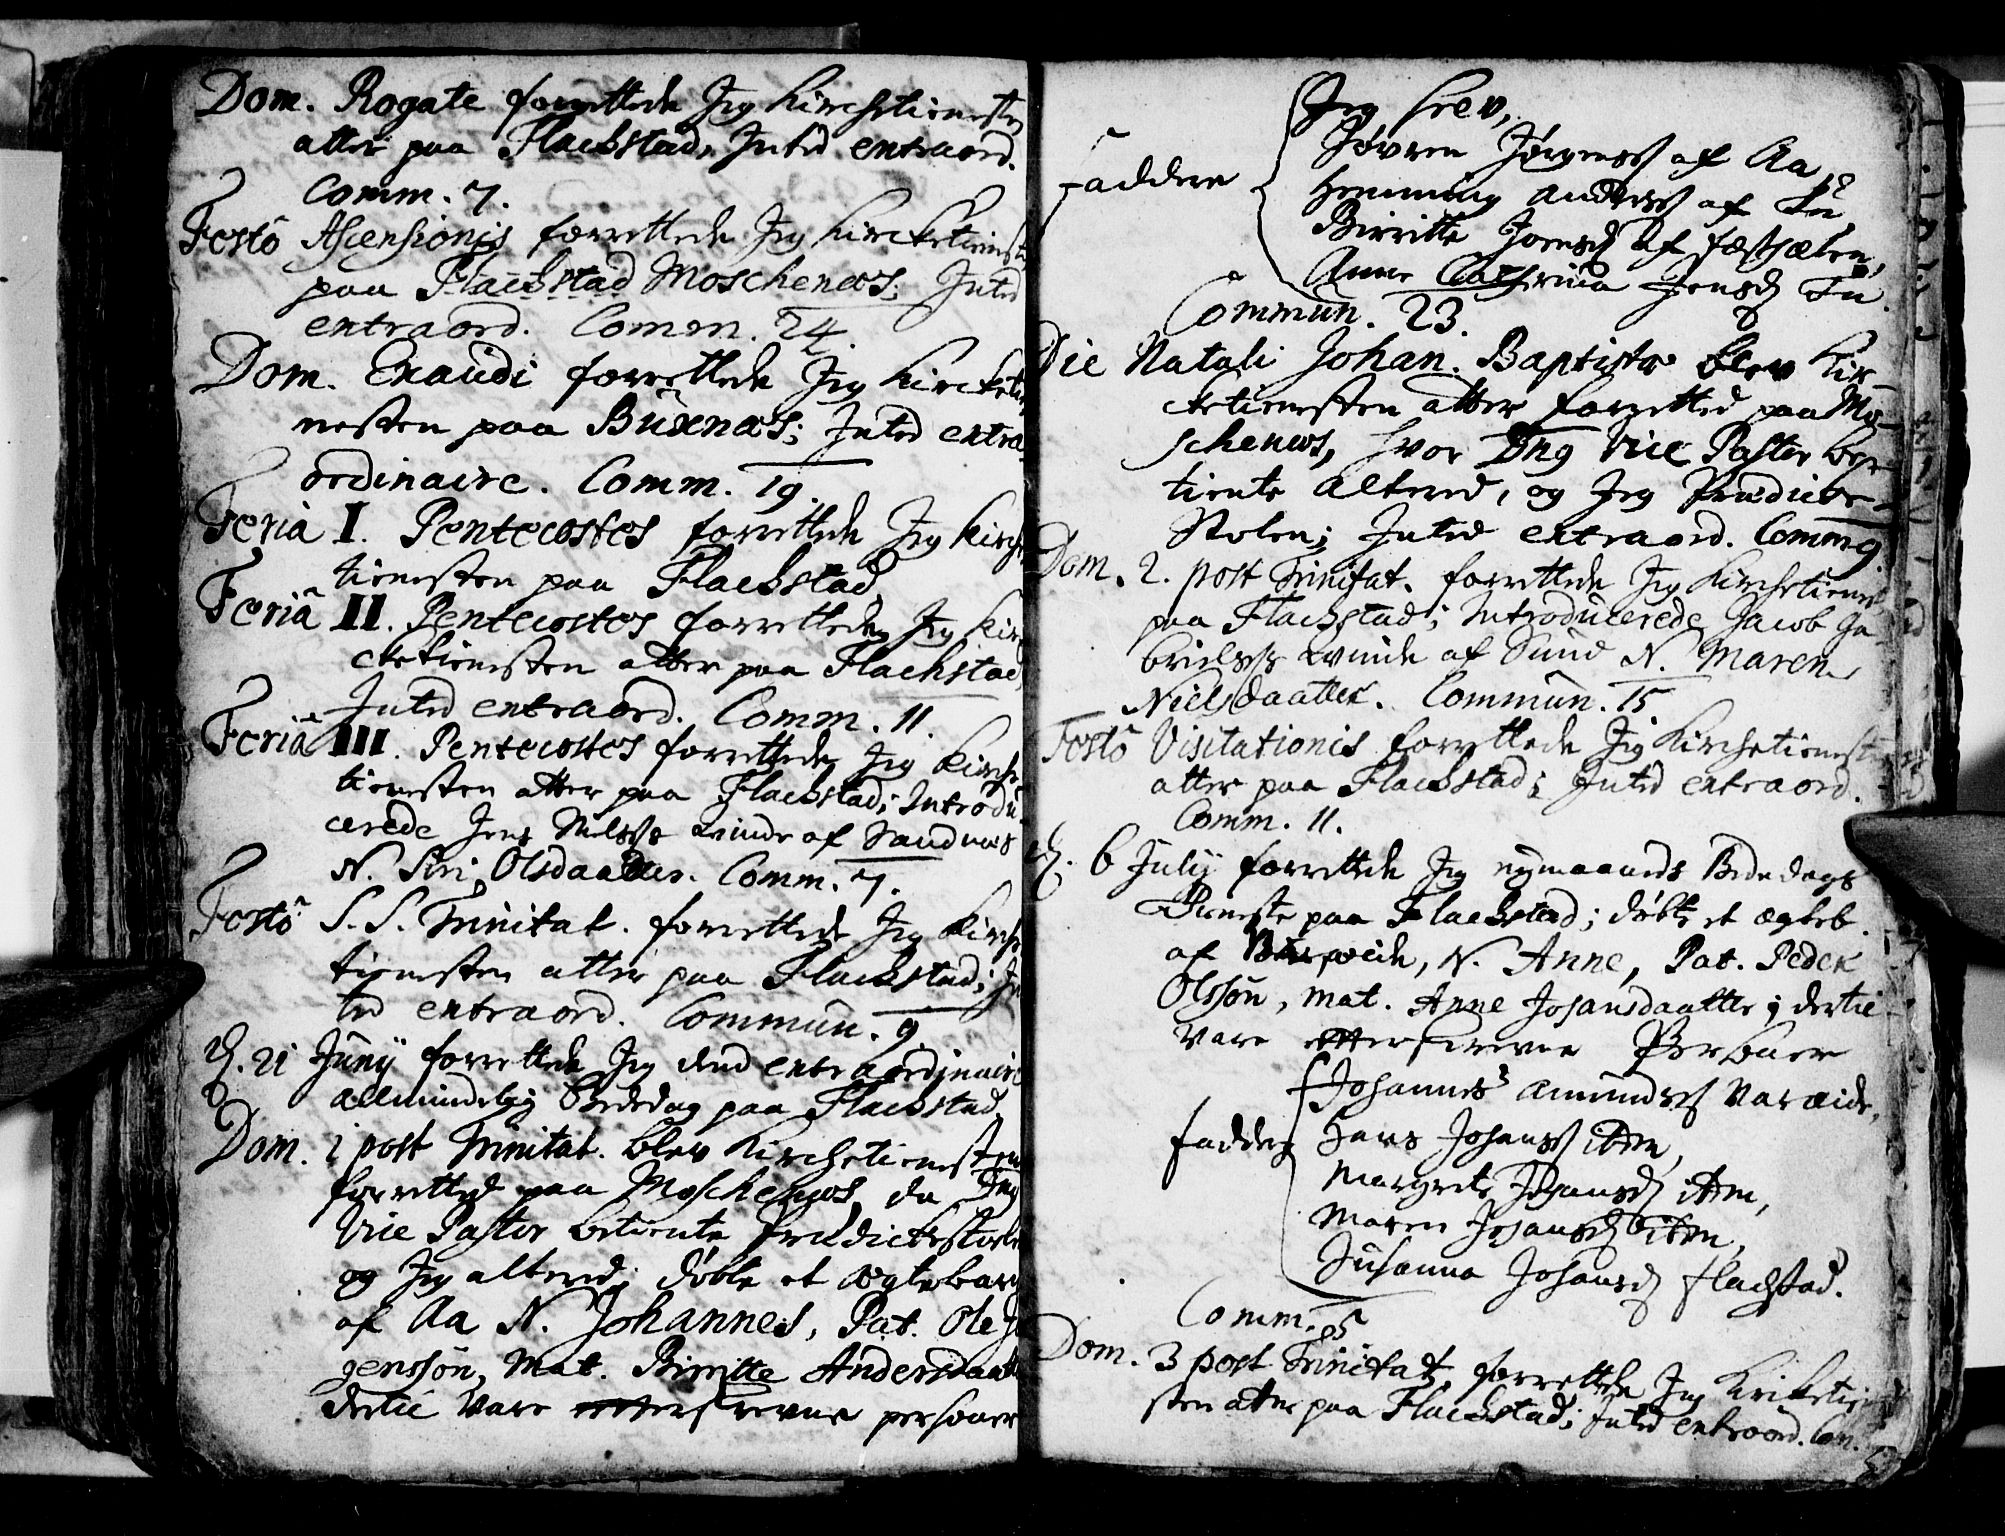 Dom. Rogate forrettede Jeg Kirchetienesten
atter paa Flachstad, Inted extraord.
Comm. 7.
Festo Ascensionis forrettede Jeg Kircketienest
paa Flachstad Moschenæs; Inted
extraord. Comm. 24.
Dom. Exaudi forrettede Jeg Kircketie
nesten paa Buxnæs; Inted extra
ordinaire. Comm. 19.
Feria I. Pentecostes forrettede Jeg Kirche
tienesten paa Flachstad,
Feriâ II. Pentecostes forrettede Jeg Kir
cketienesten atter paa Flachstad,
Inted extraord. Comm. 11.
Feriâ III. Pentecostes forrettede Jeg Kirche
tienesten atter paa Flachstad; Introdu
cerede Jens Nilss: qvinde af Sandnæs
N. Siri Olsdaatter. Comm. 7.
Festô S. S. Trinitat. forrettede Jeg Kirche
tienesten atter paa Flachstad; In
ted extraord. Commun. 9.
d. 21 Junij forrettede Jeg dend extraordinaire
allmindelig Bededag paa Flachstad,
Dom. 1 post Trinitat. blev Kirchetienesten
forrettet paa Moschenæs, da
Vice Pastor betiente Prædickestolen
og Jeg altered; døbte et ægtebarn
af Aa N. Johannes, Pat. Ole Jø
genssøn, Mat. Birritte Andersdaatt
dertil vare efterskrevne personer
Jeg selv,
Jøvren Jørgenss af Aa,
Faddere Hemming Anderss af
Birritte Joensd af
Anne Cathrina Jensd
Commun. 23.
Die Natali Johan. Baptistæ blev Kir-
cketienesten atter forrettet paa Mo-
schenæs, hvor Vice Pastor be-
tiente Altered, og Jeg Prædicke-
Stolen; Inted extraord. Comm 9
Dom. 2. post Trinitat. forrettede Jeg Kirchetienest
paa Flachstad; Introducerede Jacob Ga-
brielss: qvinde af Sund N. Maren
Nielsdaatter. Commun. 15
Festô Visitationis forrettede Jeg Kirchetienesten
atter paa Flachstad; Inted extraord.
Comm. 11.
d. 6 Julij forrettede Jeg nymaaneds Bededags
Tieneste paa Flachstad; døbte et ægteb.
af N. Anne, Pat. Peder
Olssøn, mat. Anne Johansdaatter; dertil
vare efterskrevne Personer
Johannes Amundss Varæide,
Faddere Hans Johanss item,
Margrete Johansd item,
Maren Johansd item,
Susanna Johansd Flachstad.
Comm. 5
Dom. 3 post Trinitat. forrettede Jeg Kirketiene
sten atter paa Flachstad; Inted extraord. Com.